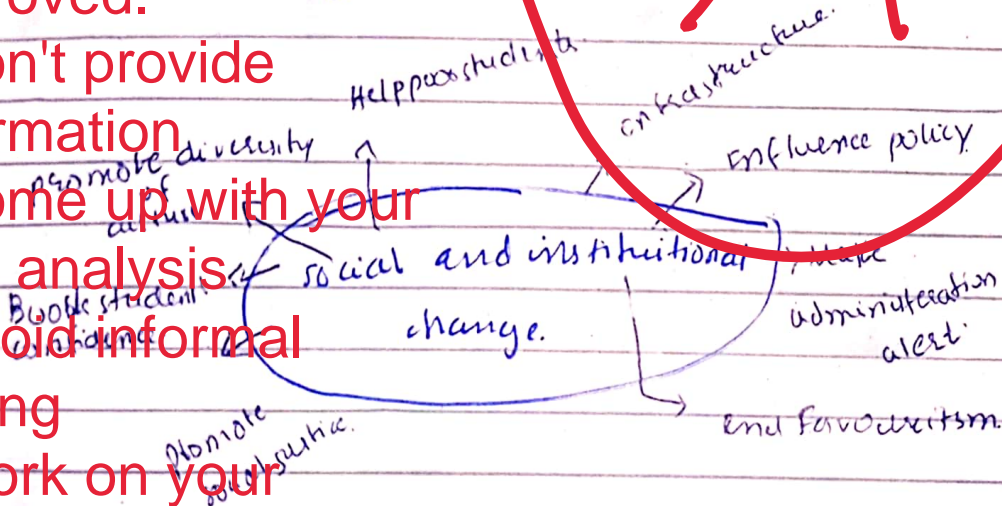 oved.
on't provide
rmation
ome up with your
analysis
oid informal
ng
ork on your
Help poor students
infrastructure.
Influence policy
promote diversity
of
social and institutional
change.
Make
administeration
alert.
student
end favoureitsm.
Promote
social justice.